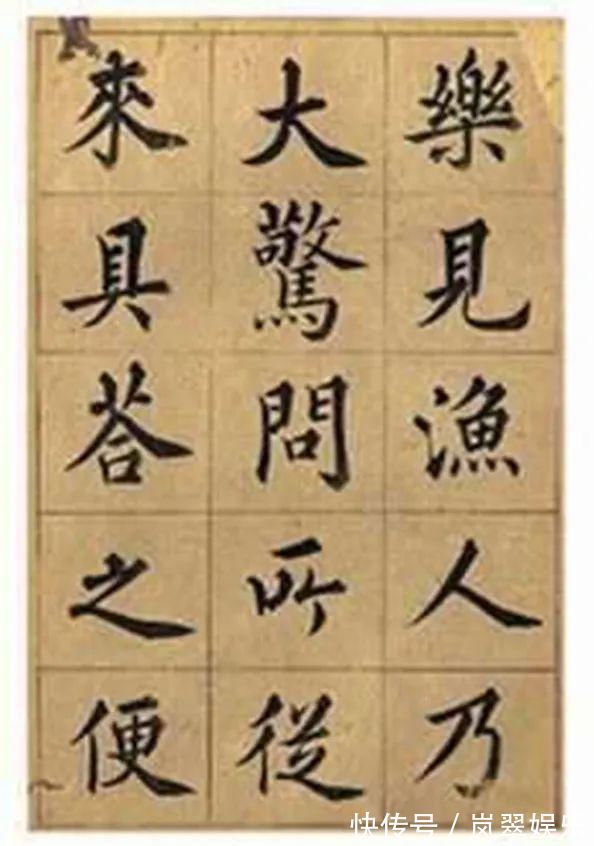 樂見漁人乃
大驚問所從
來具荅之便
快传号／岚翠娱乐